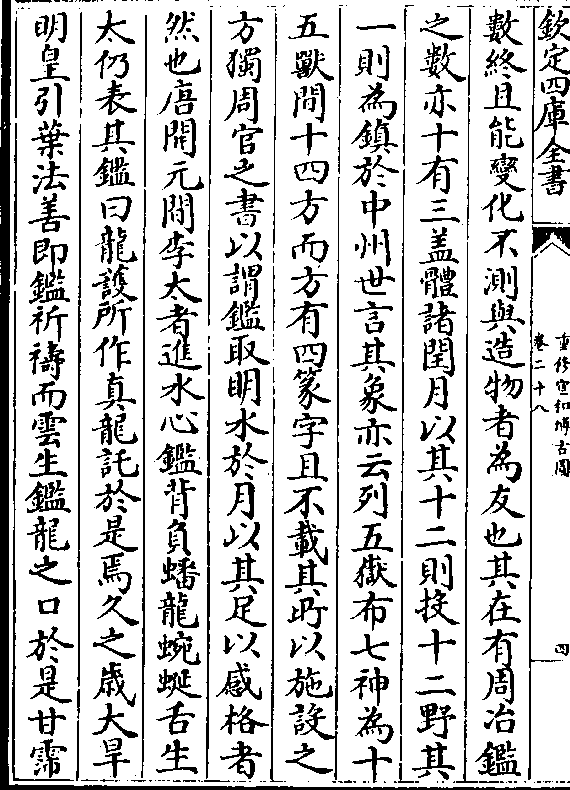 欽定四庫全書
重修宣和博古圖
卷二十八
四
數終且能變化不測與造物者為友也其在有周冶鑑
之數亦十有三盖體諸閏月以其十二則按十二野其
一則為鎮於中州世言其象亦云列五嶽布七神為十
五獸間十四方而方有四篆字且不載其所以施設之
方獨周官之書以謂鑑取明水於月以其足以感格者
然也唐開元間李太者進水心鑑背負蟠龍蜿蜒舌生
太仍表其鑑曰龍護所作真龍託於是焉久之歲大旱
明皇引葉法善即鑑祈禱而雲生鑑龍之口於是甘霈